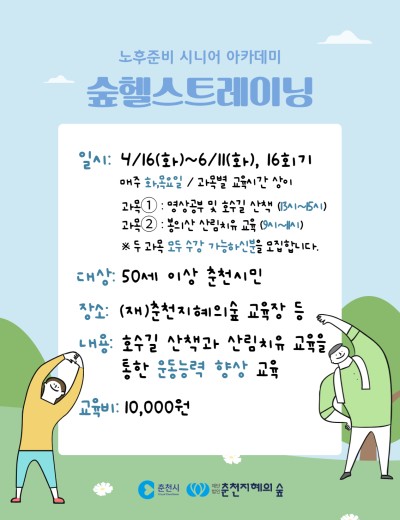 노후준비 시니어 아카데미
숲헬스트레이닝
일시: 4/16(화)~6/11(화), 16회기
매주 화,목요일 / 과목별 교육시간 상이
과목① : 명상공부 및 호수길 산책 (13시~15시)
과목② : 봉의산 산림치유 교육 (9시~11시)
※ 두 과목 모두 수강 가능하신분을 모집합니다.
대상: 50세 이상 춘천시민
장소: (재)춘천지혜의숲 교육장 등
내용: 호수길 산책과 산림치유 교육을
통한 운동능력 향상 교육
교육비: 10,000원
춘천시 재단법인 춘천지혜의 숲